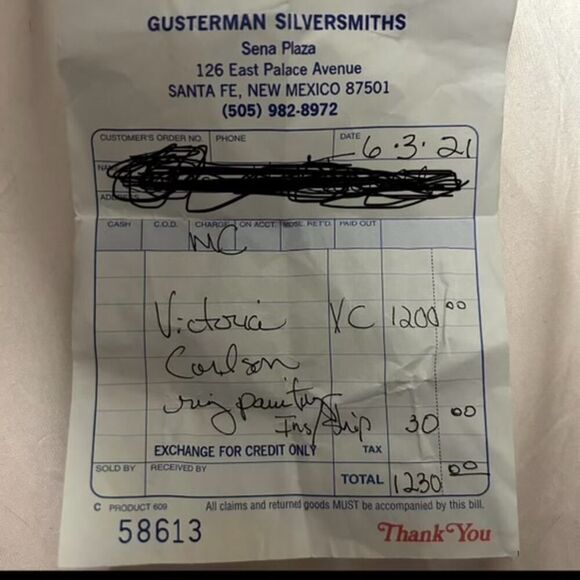 GUSTERMAN SILVERSMITHS
Sena Plaza
126 East Palace Avenue
SANTA FE, NEW MEXICO 87501
(505) 982-8972
CUSTOMER'S ORDER NO. PHONE DATE 6.3.21
CASH C.O.D. CHARGE ON ACCT. MDSE. RET'D. PAID OUT
MC
Victoria VC 1200 00
Carlson
ring
Ins/Ship 30 00
EXCHANGE FOR CREDIT ONLY TAX
SOLD BY RECEIVED BY TOTAL 1230 00
C PRODUCT 609 All claims and returned goods MUST be accompanied by this bill.
58613 Thank You